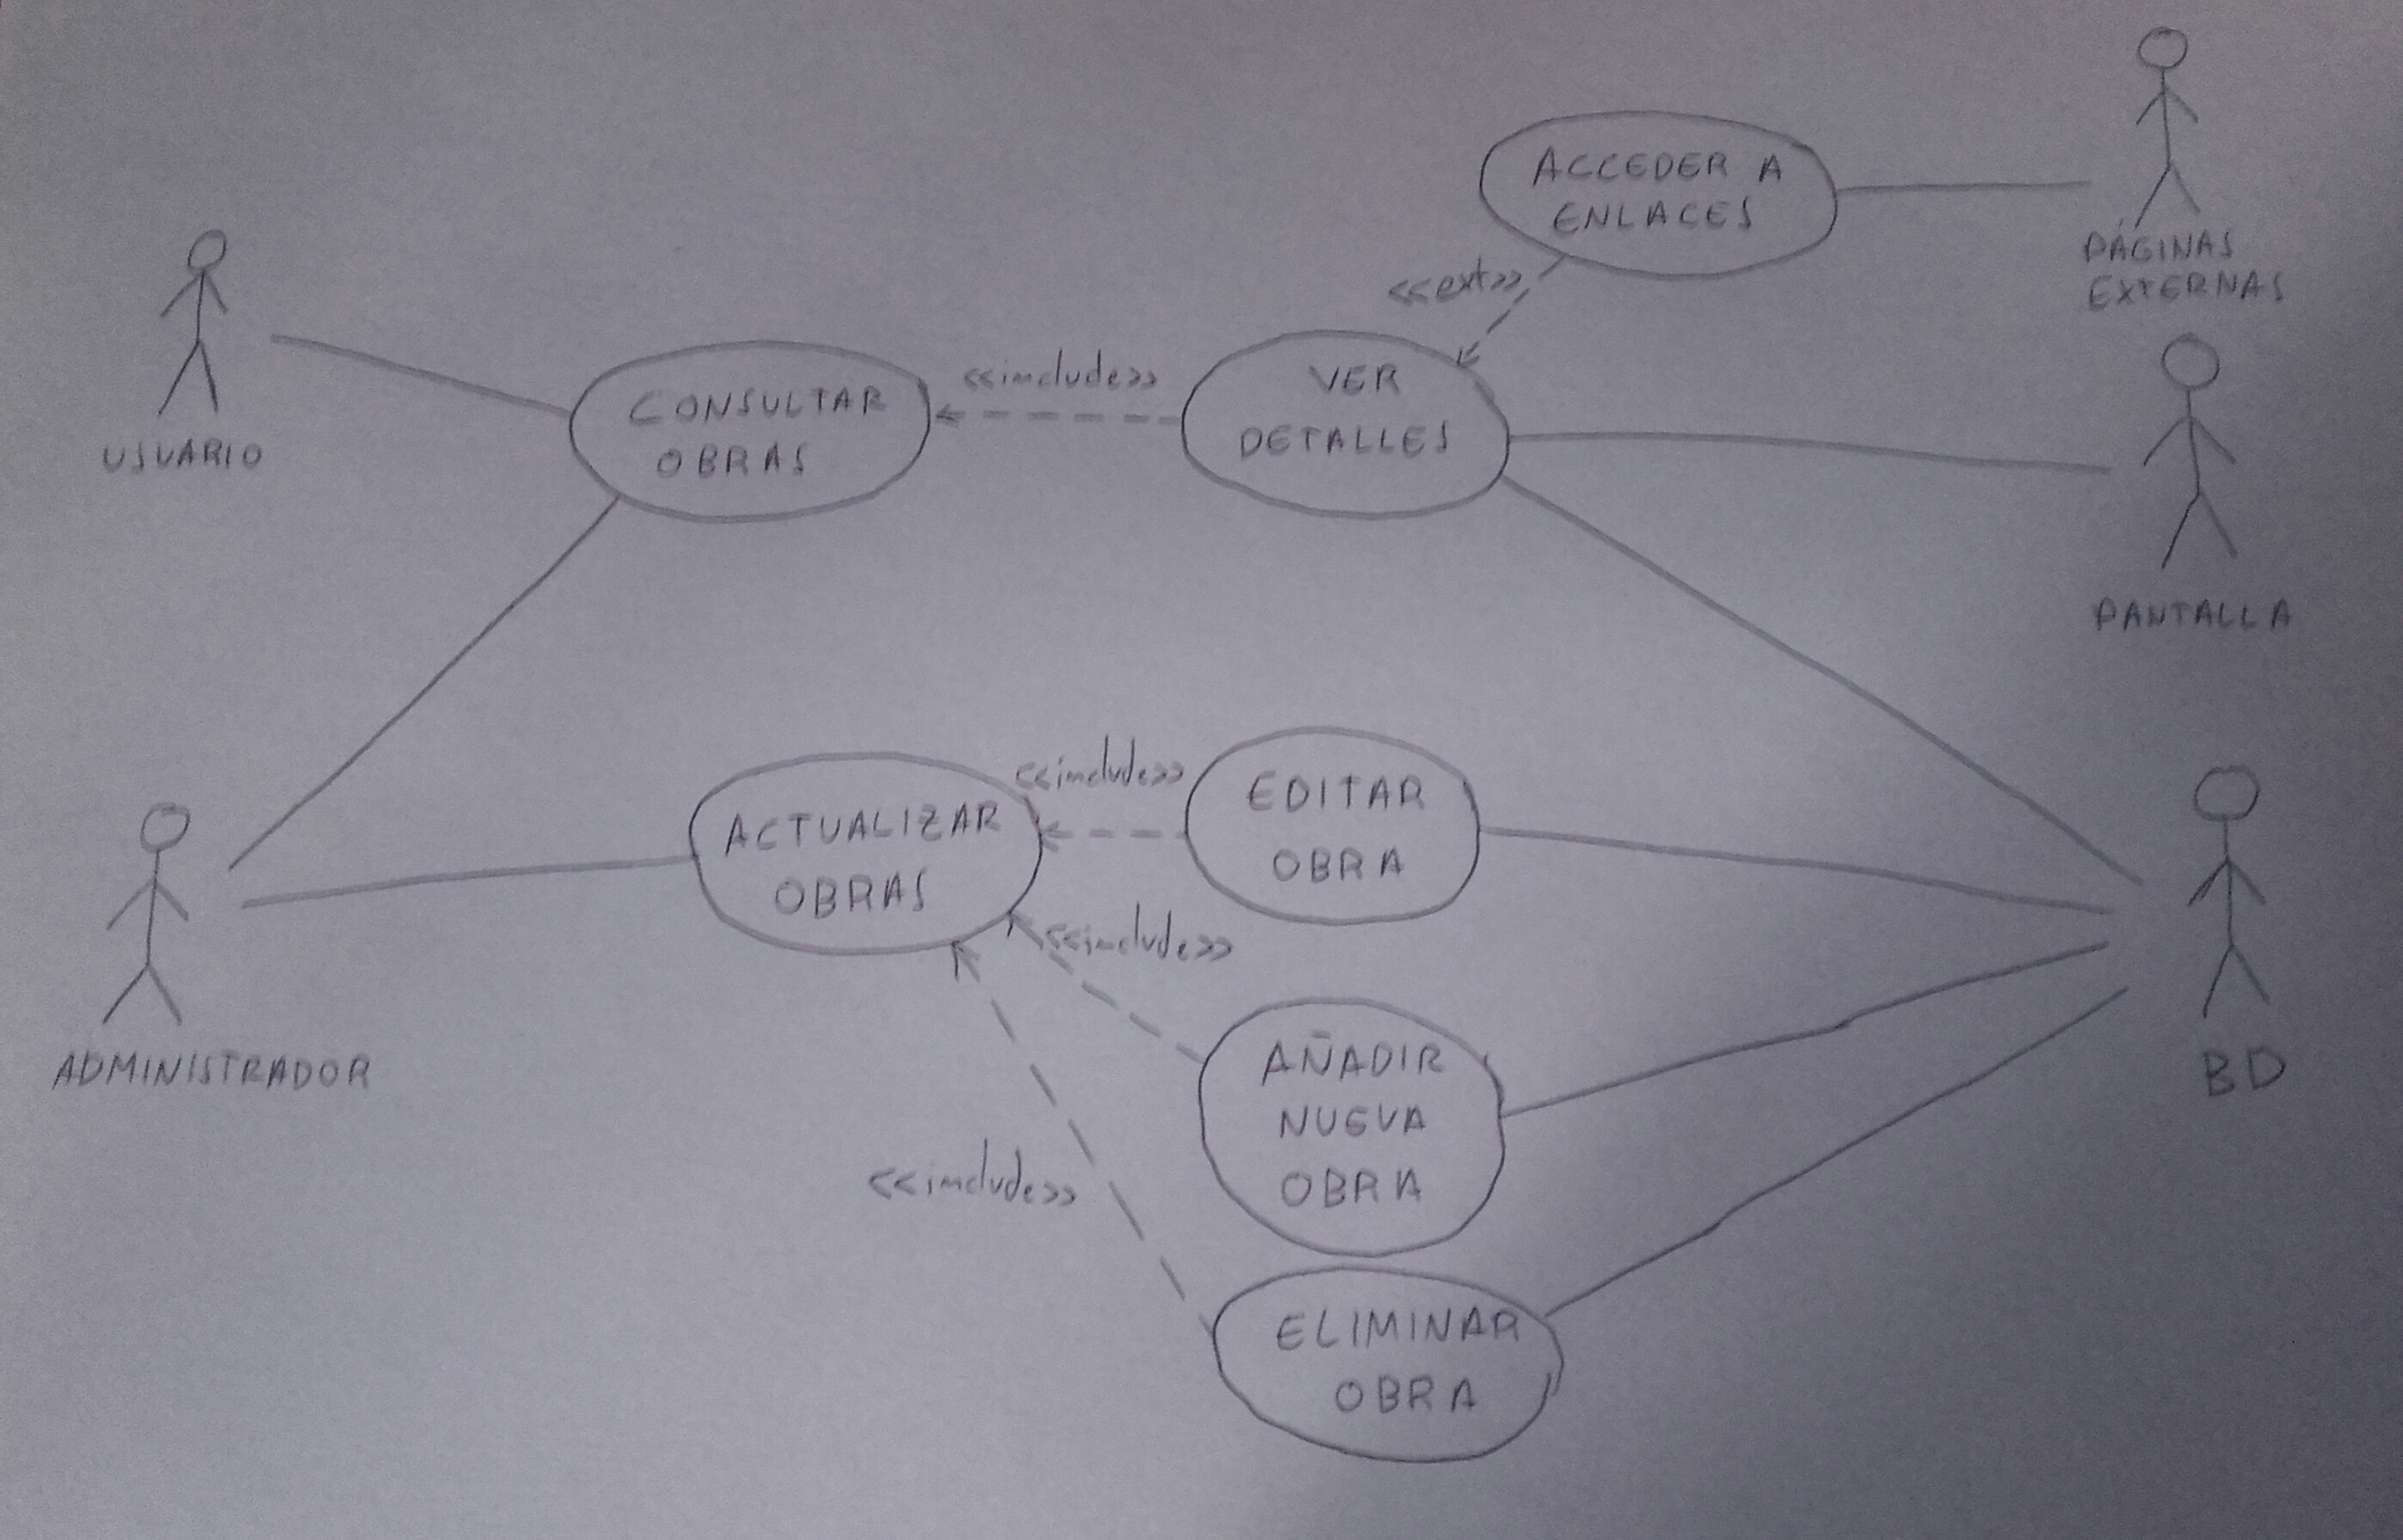 ACCEDER A
ENLACES
PÁGINAS
EXTERNAS
<<ext>>
USUARIO
CONSULTAR
OBRAS
<<include>>
VER
DETALLES
PANTALLA
ACTUALIZAR
OBRAS
<<include>>
EDITAR
OBRA
<<include>>
ADMINISTRADOR
AÑADIR
NUEVA
OBRA
BD
<<include>>
ELIMINAR
OBRA